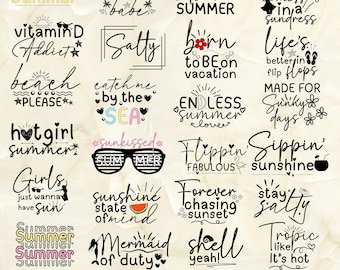 Summer
babe
SUMMER
in a
sundress
vitamin D
Addict
Salty
born
to BE on
vacation
life's
better in
flip flops
beach
PLEASE
catch me
by the
SEA
ENDLESS
summer
love
MADE FOR
Sunky
days
hot girl
summer
sunkissed
SUMMER
Flippin'
FABULOUS
Sippin'
sunshine
Girls
just wanna
have sun
sunshine
state
of mind
Forever
chasing
sunset
stay
salty
Summer
Summer
Summer
Summer
Mermaid
off duty
shell
yeah!
Tropic
like
It's hot